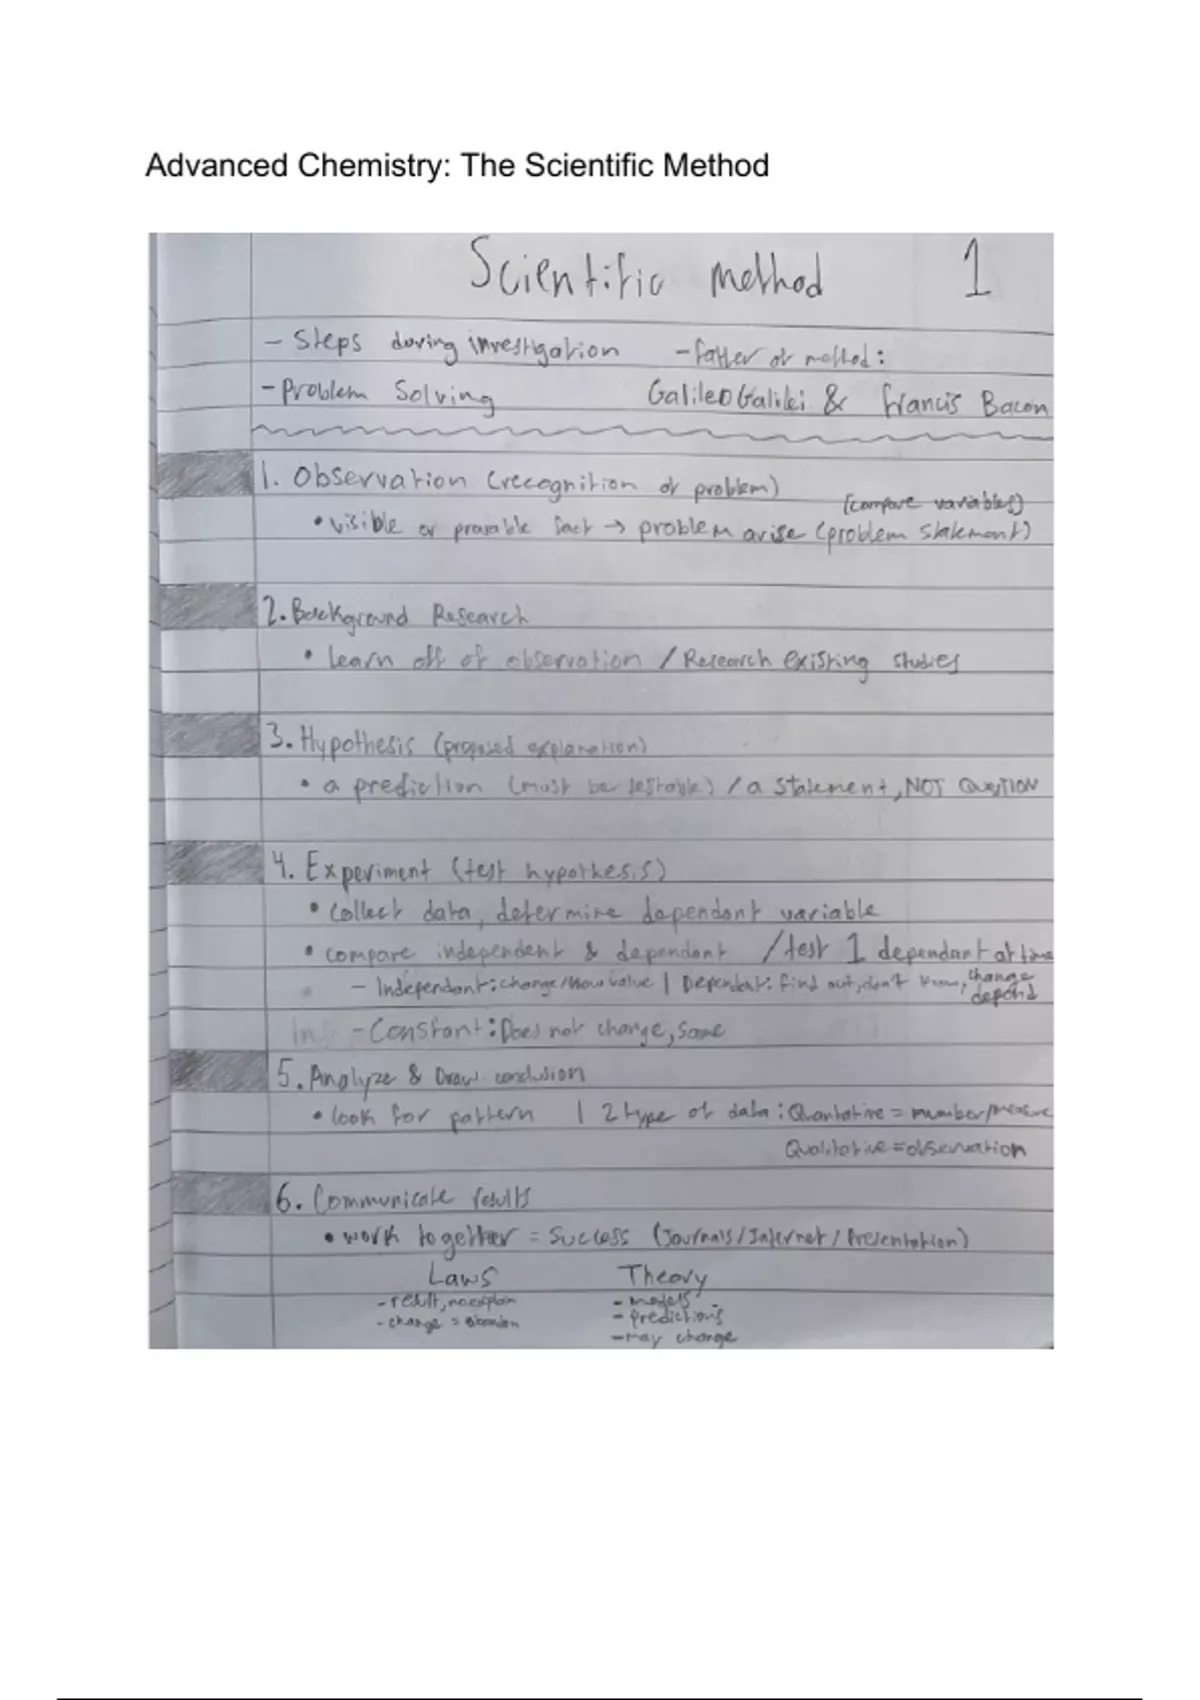 Advanced Chemistry: The Scientific Method
Scientific method 1
- Steps during investigation - father of method:
- Problem Solving Galileo Galilei & Francis Bacon
1. Observation (recognition of problem)
(compare variables)
• visible or provable fact → problem arise (problem statement)
2. Background Research
• learn off of observation / Research existing studies
3. Hypothesis (proposed explanation)
• a prediction (must be testable) / a statement, NOT QUESTION
4. Experiment (test hypothesis)
• collect data, determine dependant variable
• compare independent & dependant / test 1 dependant at time
- Independant: change/know value | Dependent: find out, don't know, change
depend
- Constant: Does not change, same
5. Analyze & Draw conclusion
• look for pattern | 2 type of data: Quantative = number/measure
Qualitative = observation
6. Communicate results
• work together = success (Journals / Internet / Presentation)
Laws Theory
- result, no explain - models
- change = - predictions
- may change